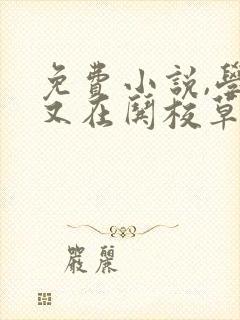 免費小説,學
又在鬨校草
嚴麗